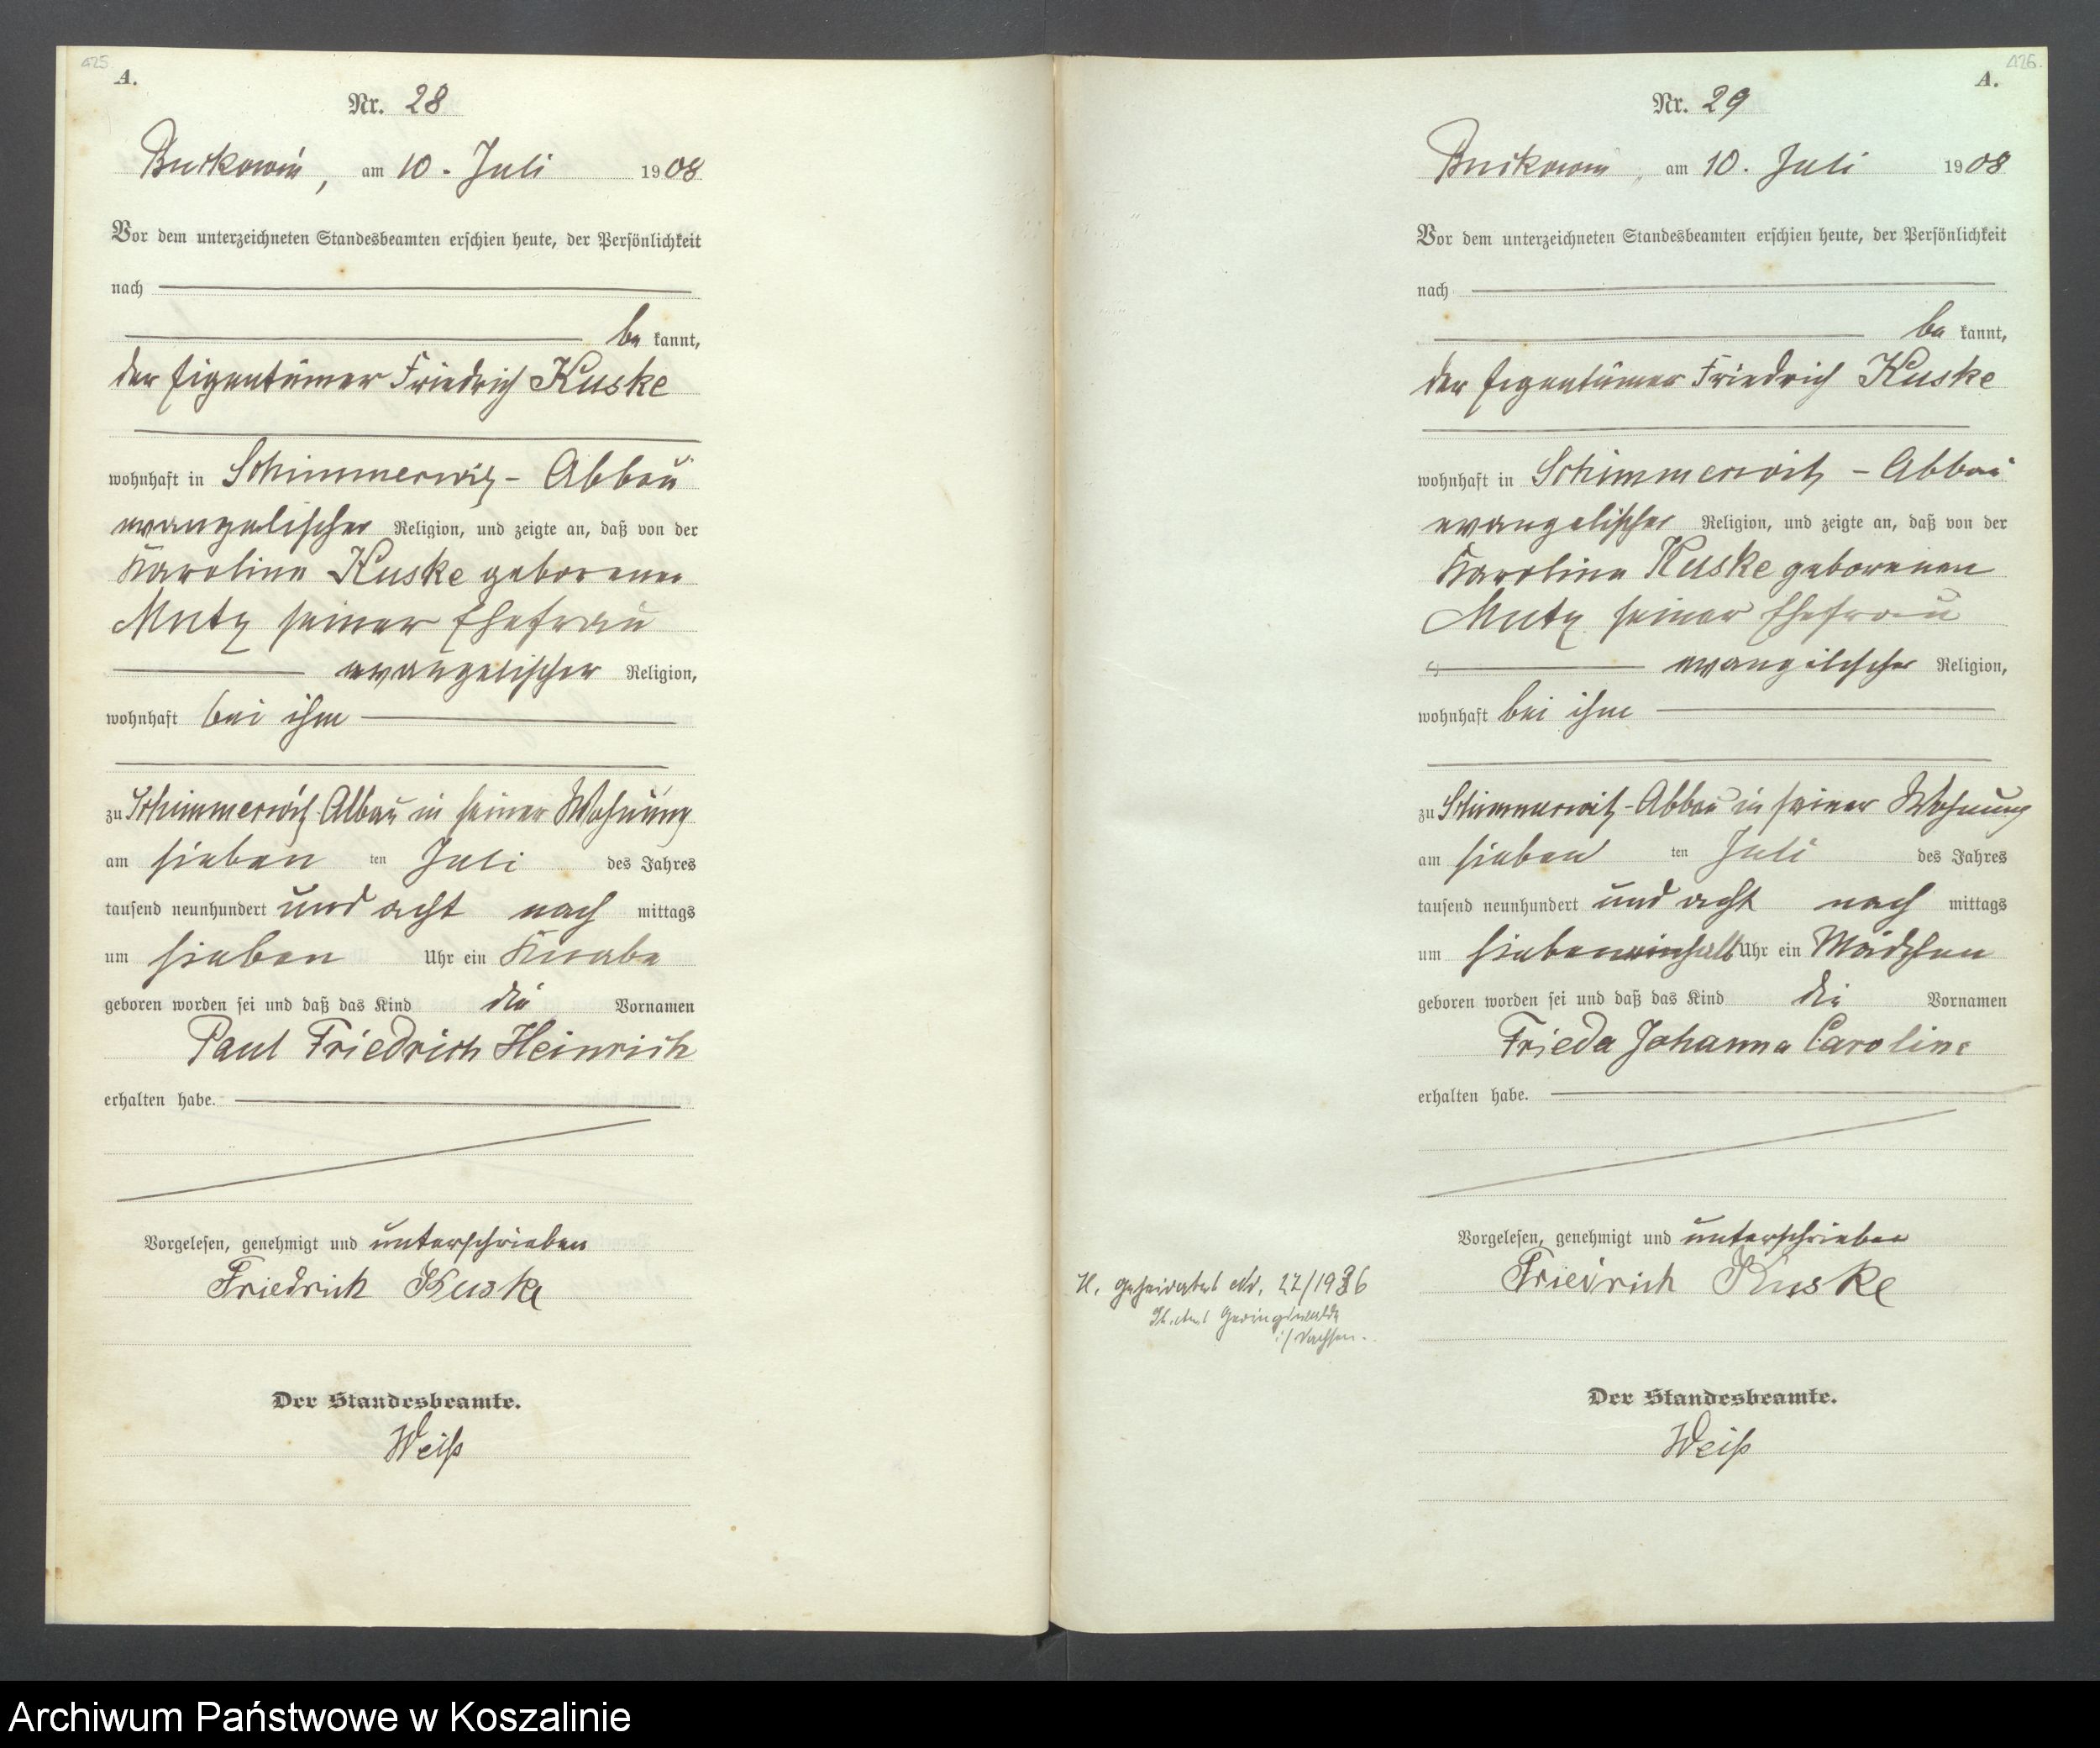 425
A.
Nr. 28
Buckowin, am 10. Juli 1908
Vor dem unterzeichneten Standesbeamten erschien heute, der Persönlichkeit
nach
be kannt,
der Eigentümer Friedrich Kuske
wohnhaft in Schimmerwitz - Abbau
evangelischer Religion, und zeigte an, daß von der
Karoline Kuske geborenen
Mutz seiner Ehefrau
evangelischer Religion,
wohnhaft bei ihm
zu Schimmerwitz-Abbau in seiner Wohnung
am sieben ten Juli des Jahres
tausend neunhundert und acht nach mittags
um sieben Uhr ein Knabe
geboren worden sei und daß das Kind die Vornamen
Paul Friedrich Heinrich
erhalten habe.
Vorgelesen, genehmigt und unterschrieben
Friedrich Kuske
Der Standesbeamte.
Weiß
426.
A.
Nr. 29
Buckowin, am 10. Juli 1908
Vor dem unterzeichneten Standesbeamten erschien heute, der Persönlichkeit
nach
be kannt,
der Eigentümer Friedrich Kuske
wohnhaft in Schimmerwitz - Abbau
evangelischer Religion, und zeigte an, daß von der
Karoline Kuske geborenen
Mutz seiner Ehefrau
evangelischer Religion,
wohnhaft bei ihm
zu Schimmerwitz-Abbau in seiner Wohnung
am sieben ten Juli des Jahres
tausend neunhundert und acht nach mittags
um siebeneinhalb Uhr ein Mädchen
geboren worden sei und daß das Kind die Vornamen
Frieda Johanna Caroline
erhalten habe.
Vorgelesen, genehmigt und unterschrieben
Friedrich Kuske
Der Standesbeamte.
Weiß
geheiratet Nr. 22/1936
St. Amt Geringswalde
i/Sachsen.
Archiwum Państwowe w Koszalinie